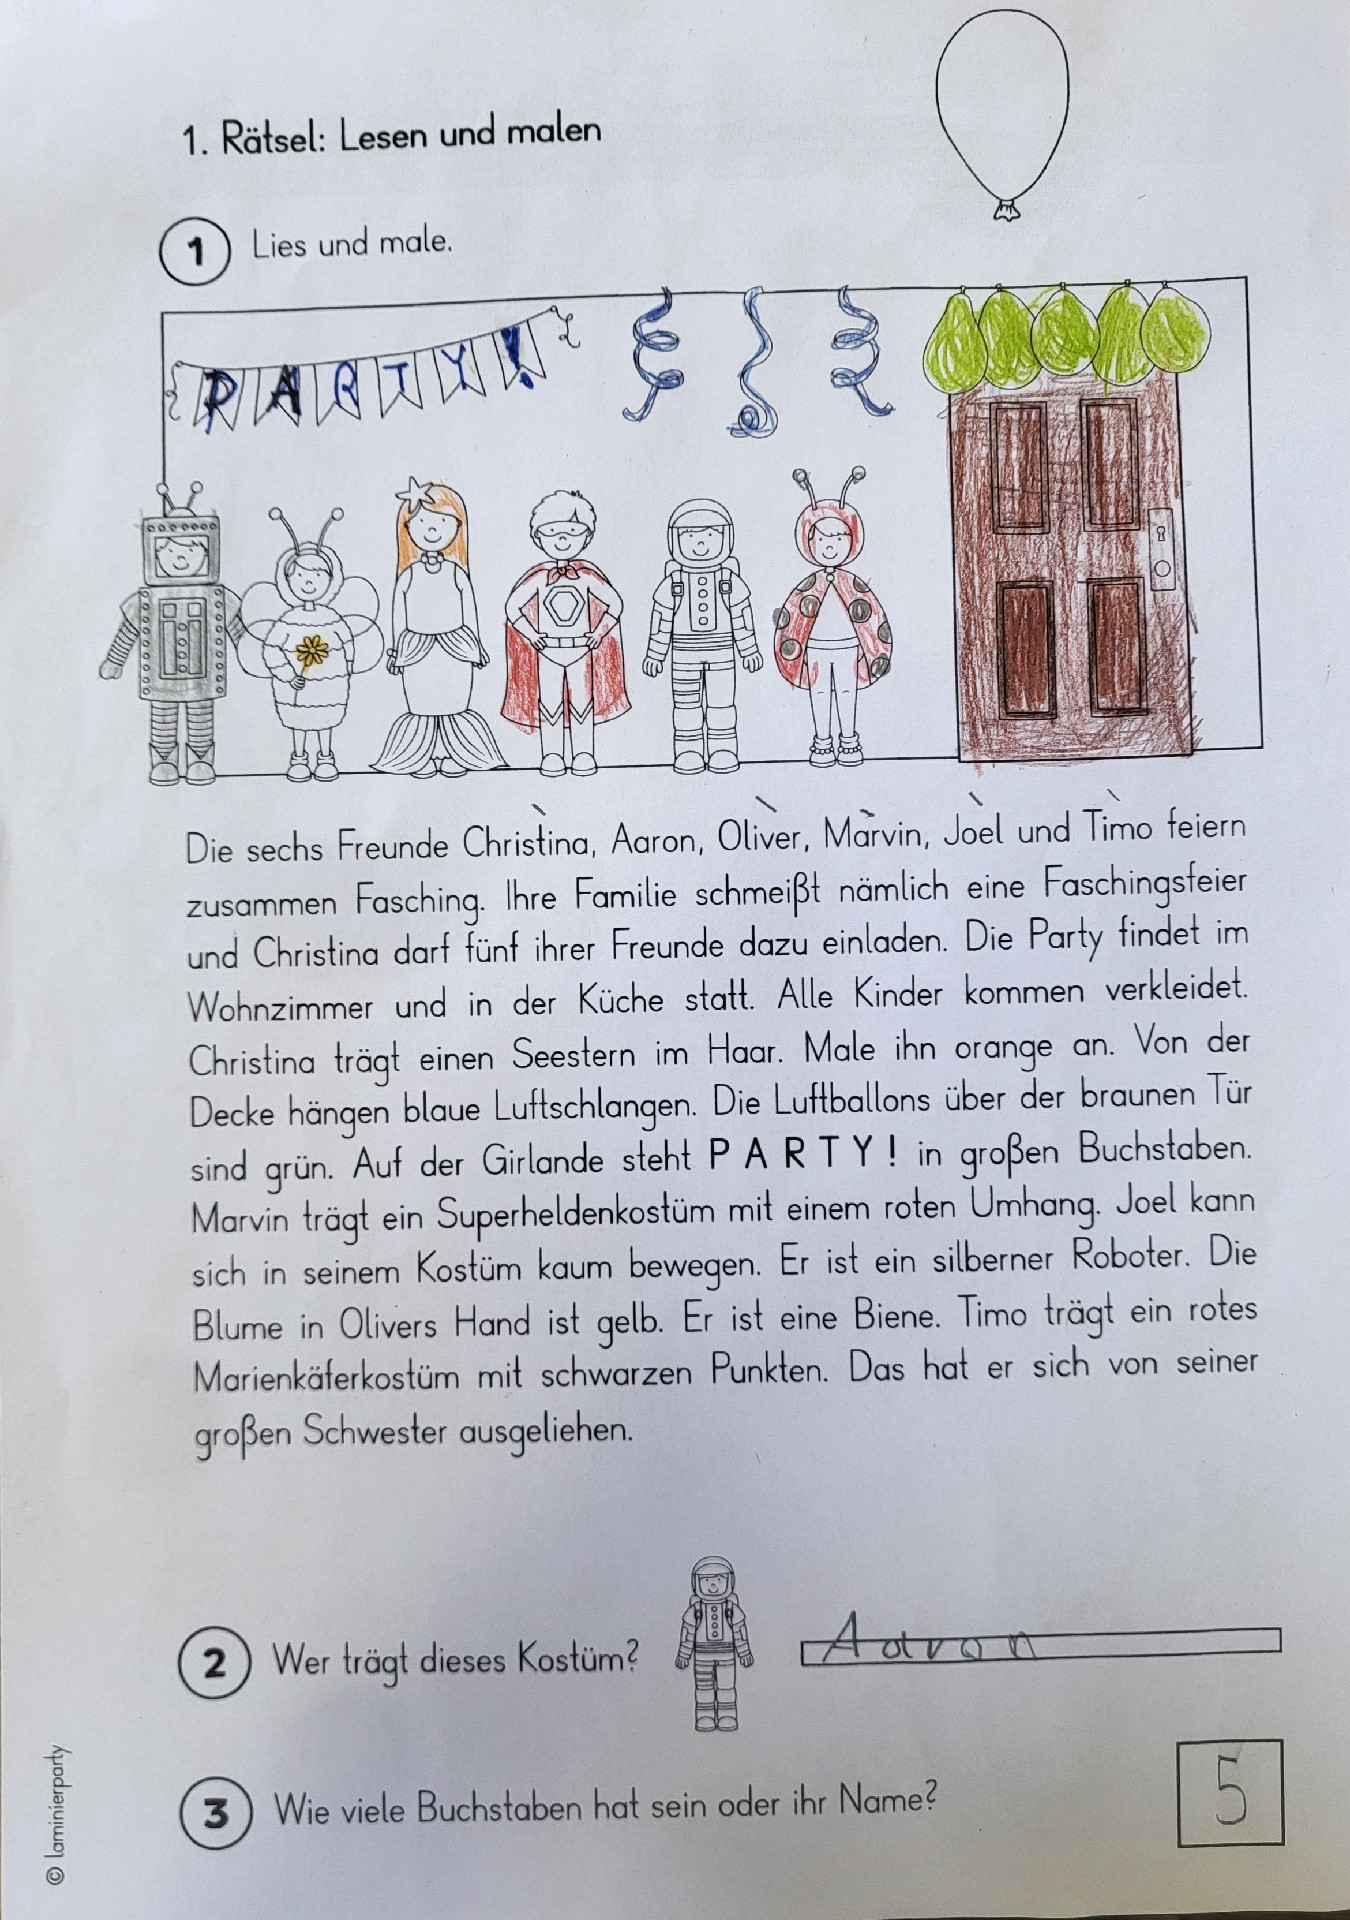 1. Rätsel: Lesen und malen
1 Lies und male.
PARTY!
Die sechs Freunde Christina, Aaron, Oliver, Marvin, Joel und Timo feiern
zusammen Fasching. Ihre Familie schmeißt nämlich eine Faschingsfeier
und Christina darf fünf ihrer Freunde dazu einladen. Die Party findet im
Wohnzimmer und in der Küche statt. Alle Kinder kommen verkleidet.
Christina trägt einen Seestern im Haar. Male ihn orange an. Von der
Decke hängen blaue Luftschlangen. Die Luftballons über der braunen Tür
sind grün. Auf der Girlande steht P A R T Y ! in großen Buchstaben.
Marvin trägt ein Superheldenkostüm mit einem roten Umhang. Joel kann
sich in seinem Kostüm kaum bewegen. Er ist ein silberner Roboter. Die
Blume in Olivers Hand ist gelb. Er ist eine Biene. Timo trägt ein rotes
Marienkäferkostüm mit schwarzen Punkten. Das hat er sich von seiner
großen Schwester ausgeliehen.
2 Wer trägt dieses Kostüm? Aaron
3 Wie viele Buchstaben hat sein oder ihr Name? 5
© laminierparty